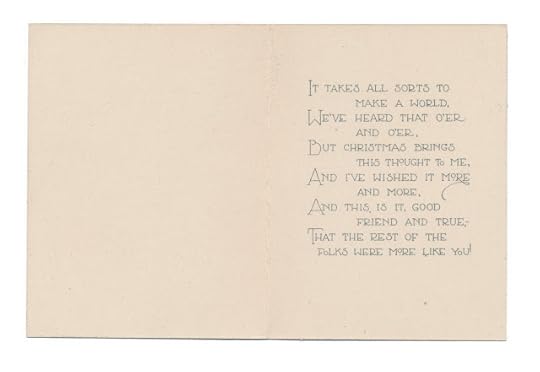 IT TAKES ALL SORTS TO
MAKE A WORLD,
WE'VE HEARD THAT O'ER
AND O'ER,
BUT CHRISTMAS BRINGS
THIS THOUGHT TO ME,
AND I'VE WISHED IT MORE
AND MORE,
AND THIS IS IT, GOOD
FRIEND AND TRUE,-
THAT THE REST OF THE
FOLKS WERE MORE LIKE YOU!